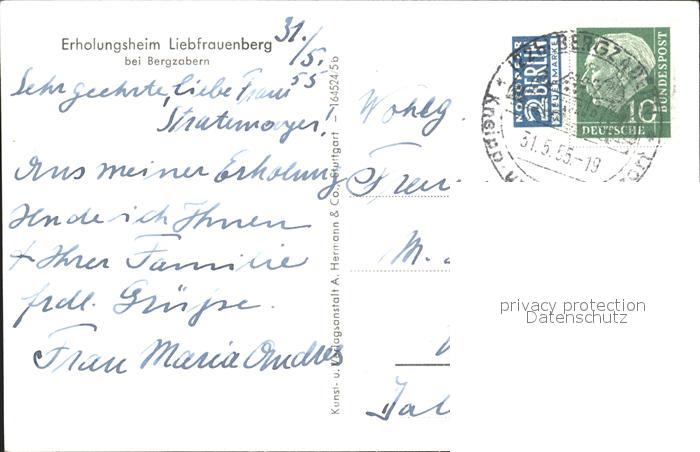 Erholungsheim Liebfrauenberg
bei Bergzabern
31./5.
55
Sehr geehrte, liebe Frau
Stratemayer!
Aus meiner Erholung
sende ich Ihnen
+ Ihrer Familie
frdl. Grüße.
Frau Maria Andres
Kunst- u. Verlagsanstalt A. Hermann & Co., Stuttgart - 164524/5b
Wohlg.
Frau
M.
NOTOPFER
2 BERLIN
STEUERMARKE
10
DEUTSCHE
BUNDESPOST
BERGZABERN
31.5.55-19
privacy protection
Datenschutz